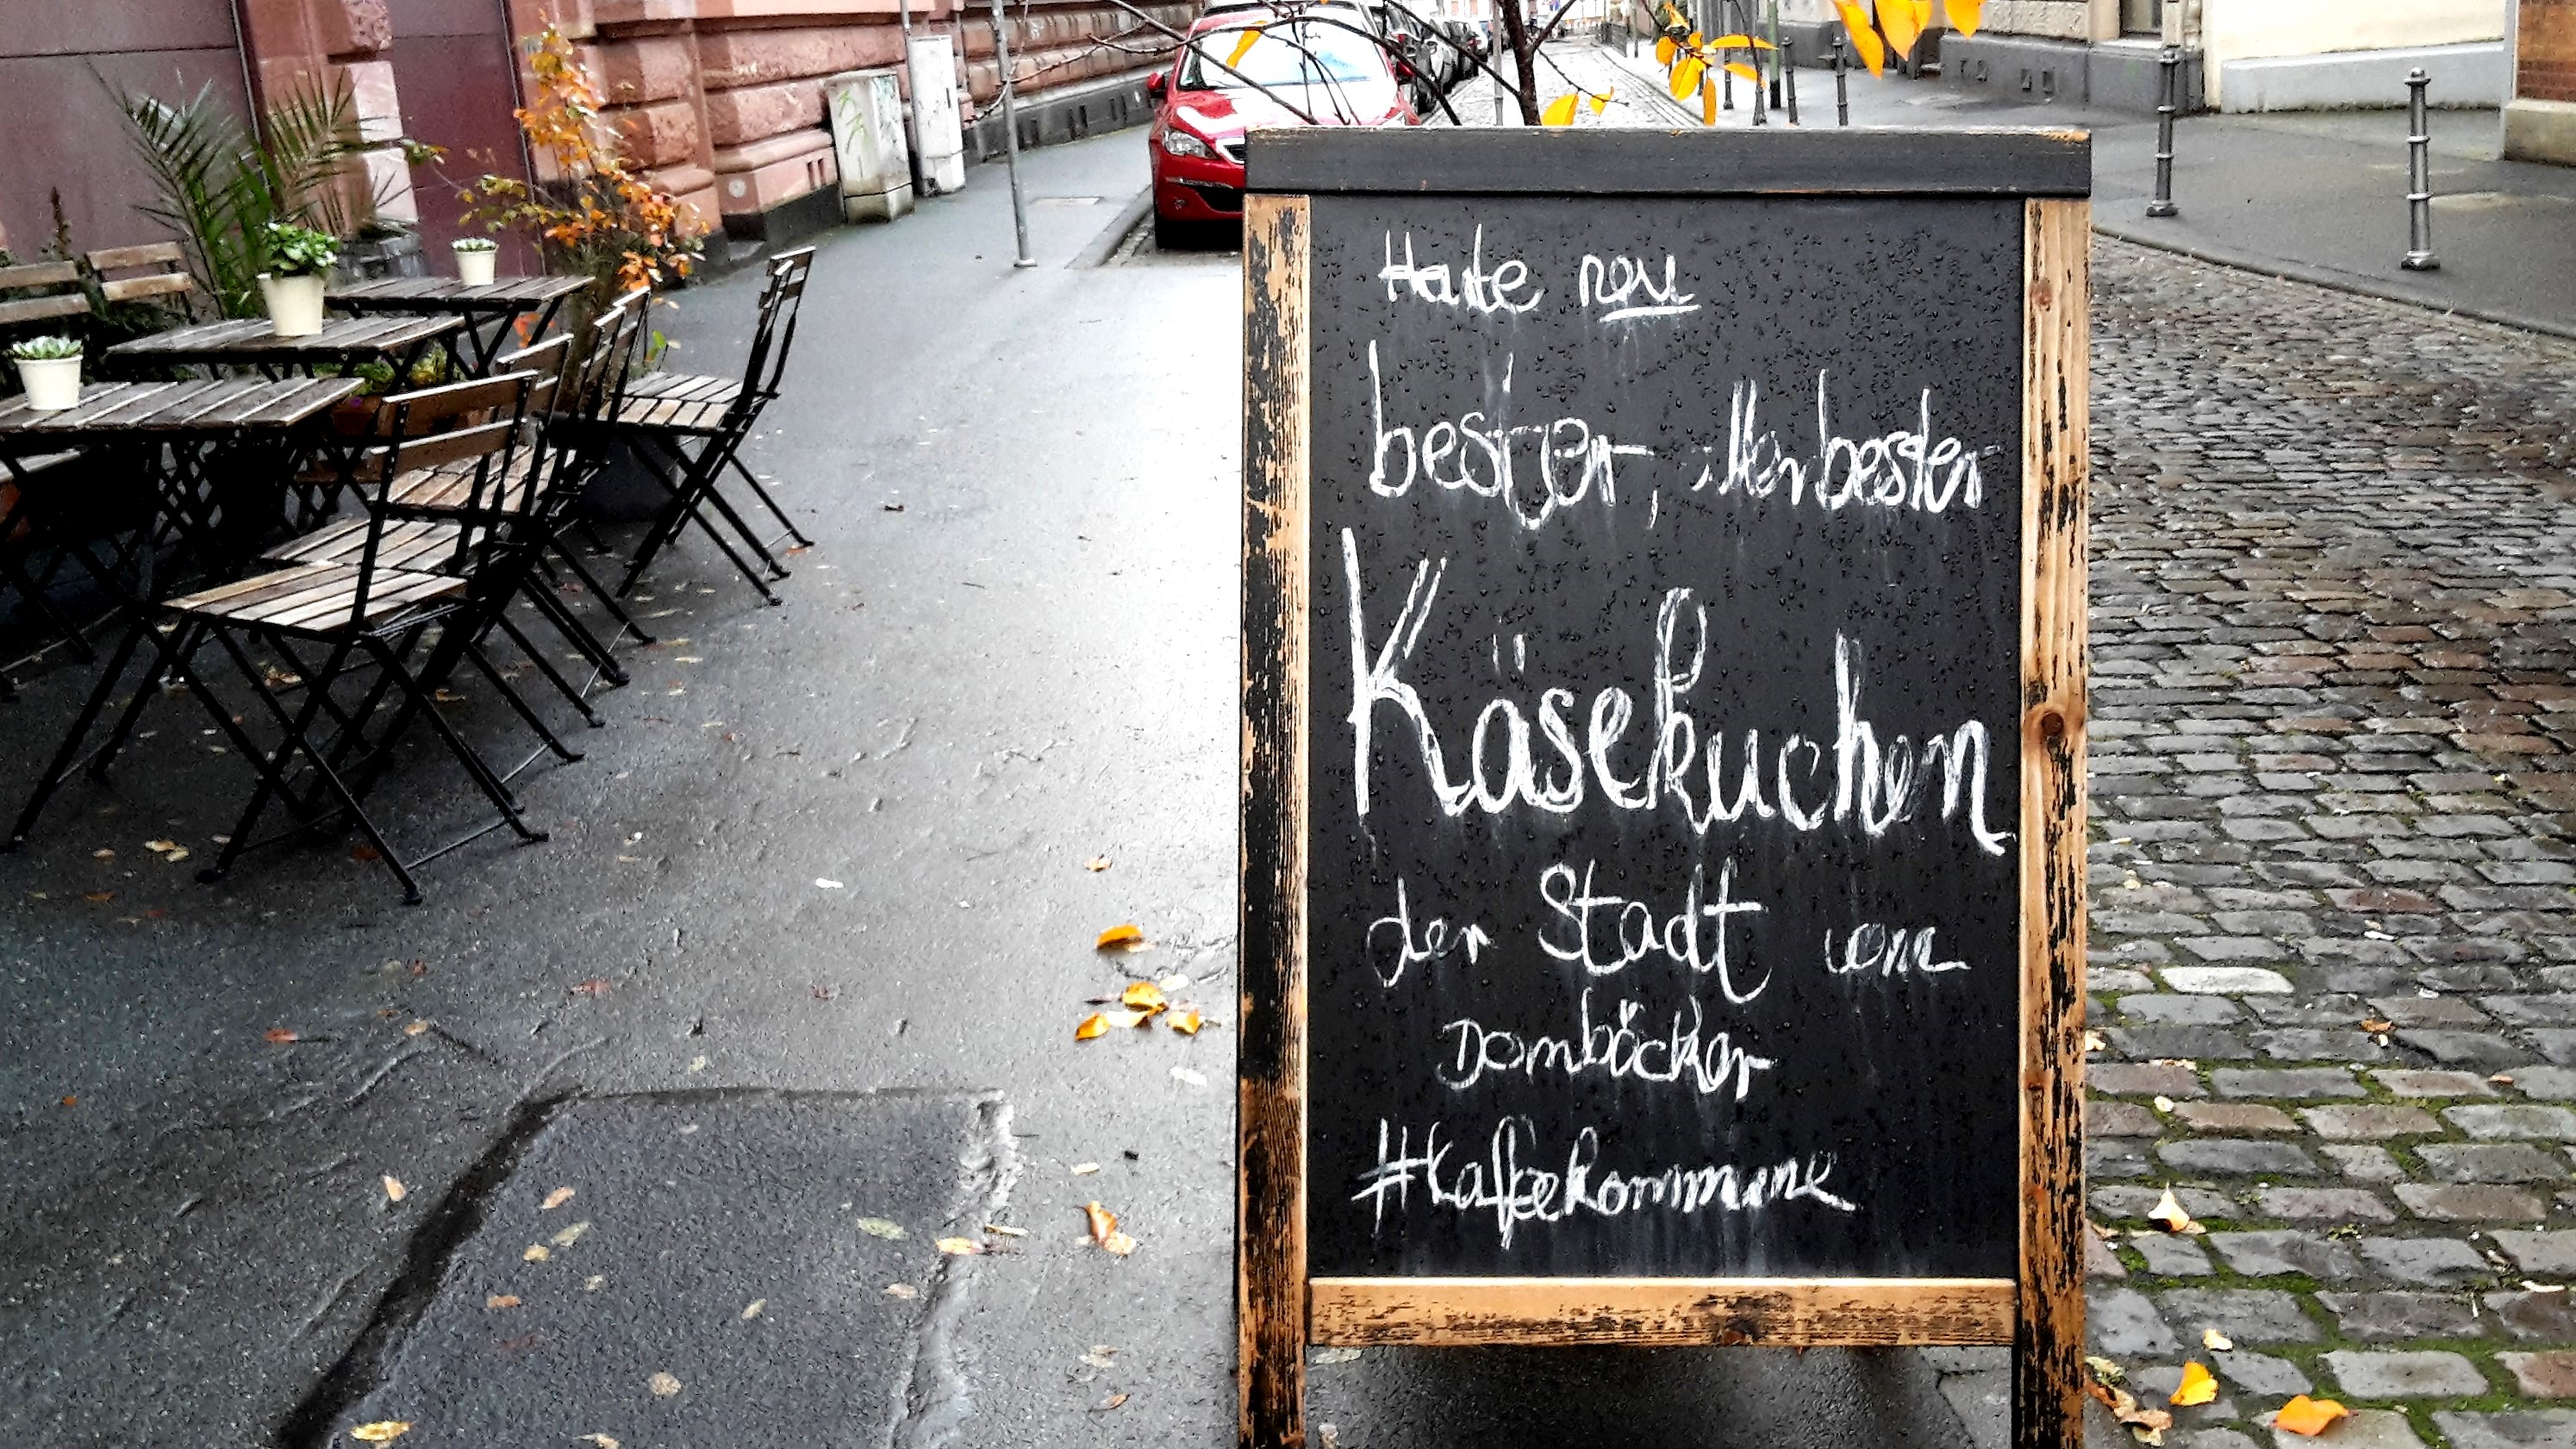 Heute neu
bester, allerbester
Käsekuchen
der Stadt vom
Dombäcker
#Kaffeekommune